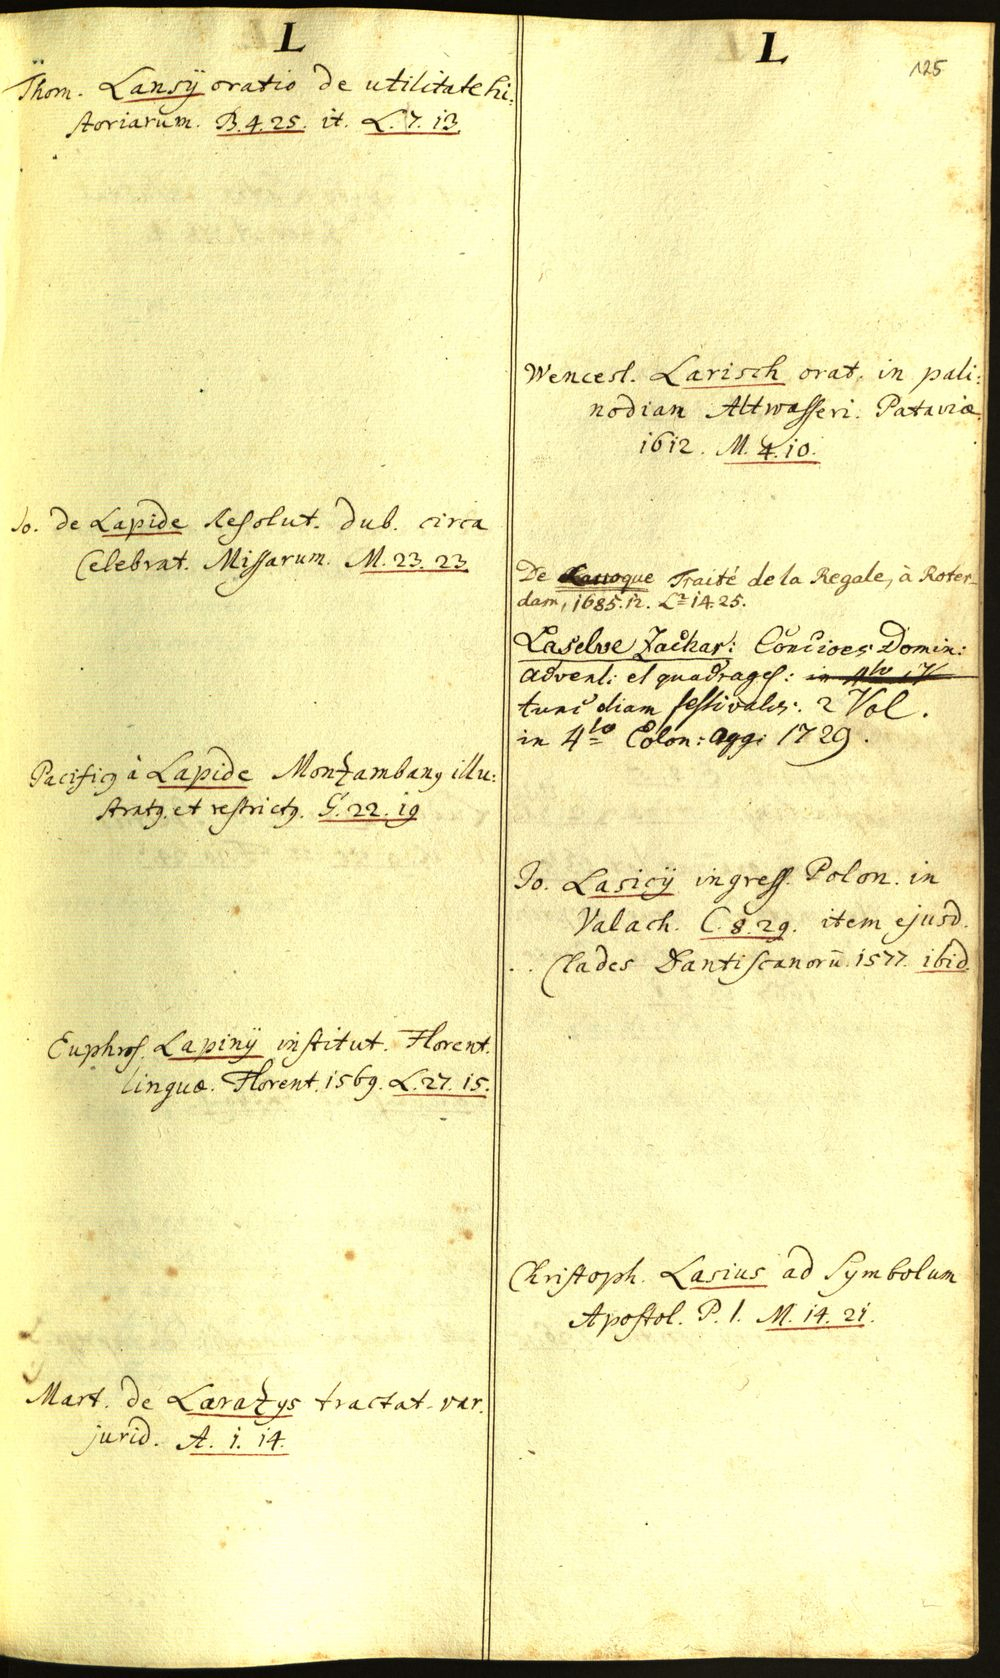 L
Thom. Lansÿ oratio de utilitate hi:
storiarum. B. 4. 25. it. L. 7. 13.
Jo. de Lapide Resolut. dub. circa
Celebrat. Missarum. M. 23. 23
Pacificꝰ à Lapide Monzambanꝰ illu:
stratꝰ. et restrictꝰ. G. 22. 19
Euphros. Lapinÿ institut. Florent.
linguæ. Florent. 1569. L. 27. 15.
Mart. de Laratzys tractat. var.
jurid. A. 1. 14.
L
125
Wencesl. Larisch orat. in pali:
nodian Altwasseri. Pataviæ
1612. M. 4. 10.
De Laroque Traité de la Regale, à Roter-
dam, 1685. 12. L. 14. 25.
Laselve Zachar: Concioes Domin:
advent: et quadrages: in 4to
tunc diam festivales: 2 Vol.
in 4to Colon: agg: 1729.
Jo. Lasicÿ ingress. Polon. in
Valach. C. 8. 29. item ejusd.
Clades Dantiscanorū. 1577. ibid.
Christoph. Lasius ad Symbolum
Apostol. P. 1. M. 14. 21.